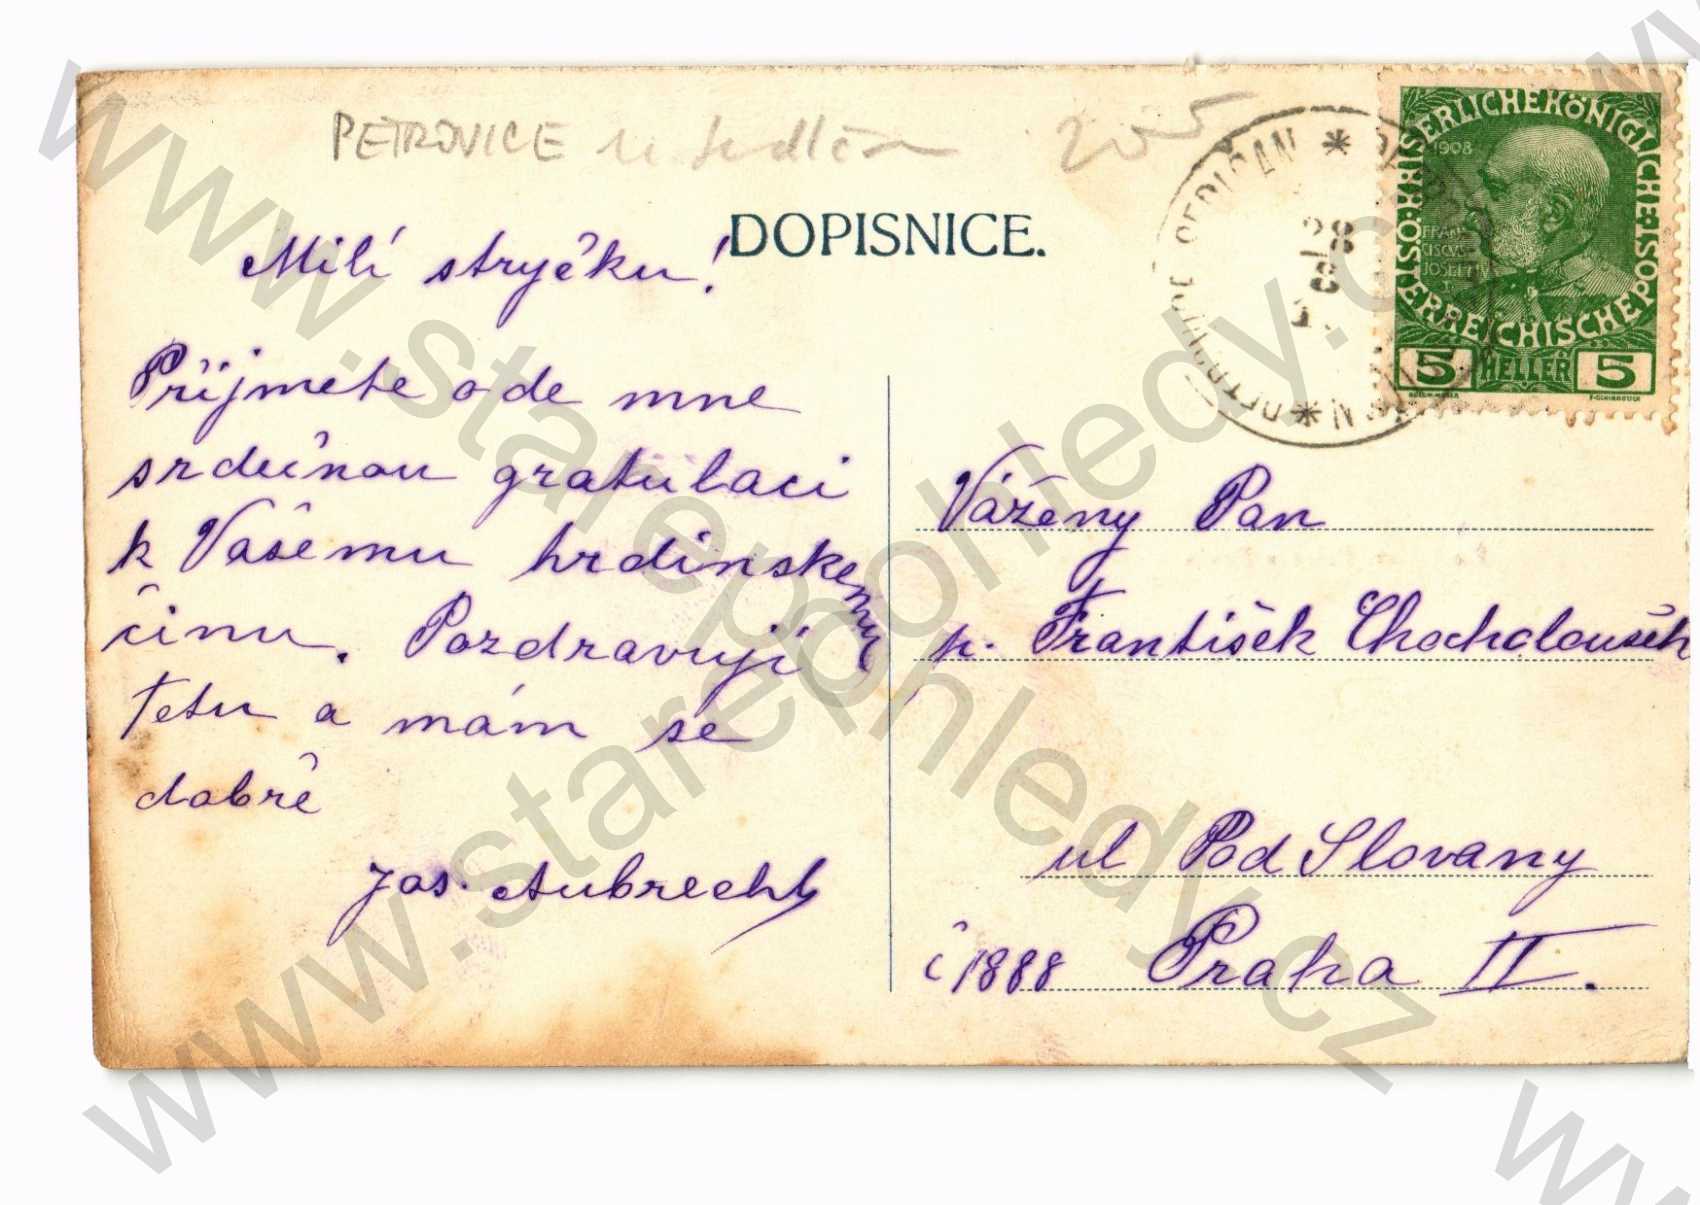 PETROVICE u Sedlčan 205
DOPISNICE.
Milí strýčku!
Příjmete o de mne
srdečnou gratulaci
k Vašemu hrdinskemu
činu. Pozdravuji
tetu a mám se
dobře
Jos. Aubrecht
Vážený Pan
p. František Chocholoušek
ul Pod Slovany
č 1888 Praha II.
KAISERLICHE KÖNIGLICHE ÖSTERREICHISCHE POST
1908
FRAN
CISCVS
JOSEFVS
I
5 HELLER 5
PETROVICE SEDLČAN
www.starepohledy.cz
www.starepohledy.cz